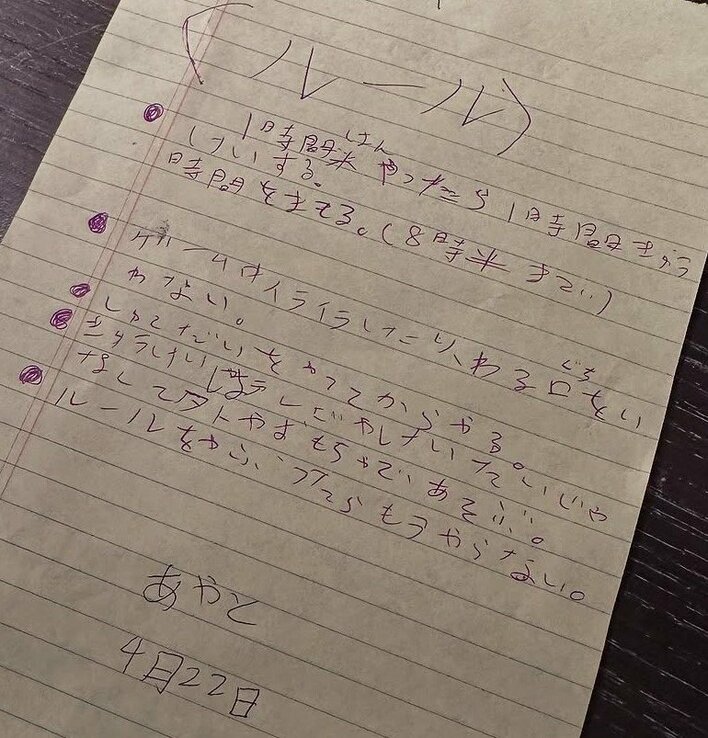 （ルール）
1時間半はんやったら1時間きゅう
けいする。
時間をまもる。（8時半まで）
ゲームはイライラしたり、わる口ぐちをい
わない。
しゅくだいをやってからやる。
きゅうけいはテレビやけいたいじゃ
なくて外やおもちゃであそぶ。
ルールをやぶったらもうやらない。
あやと
4月22日